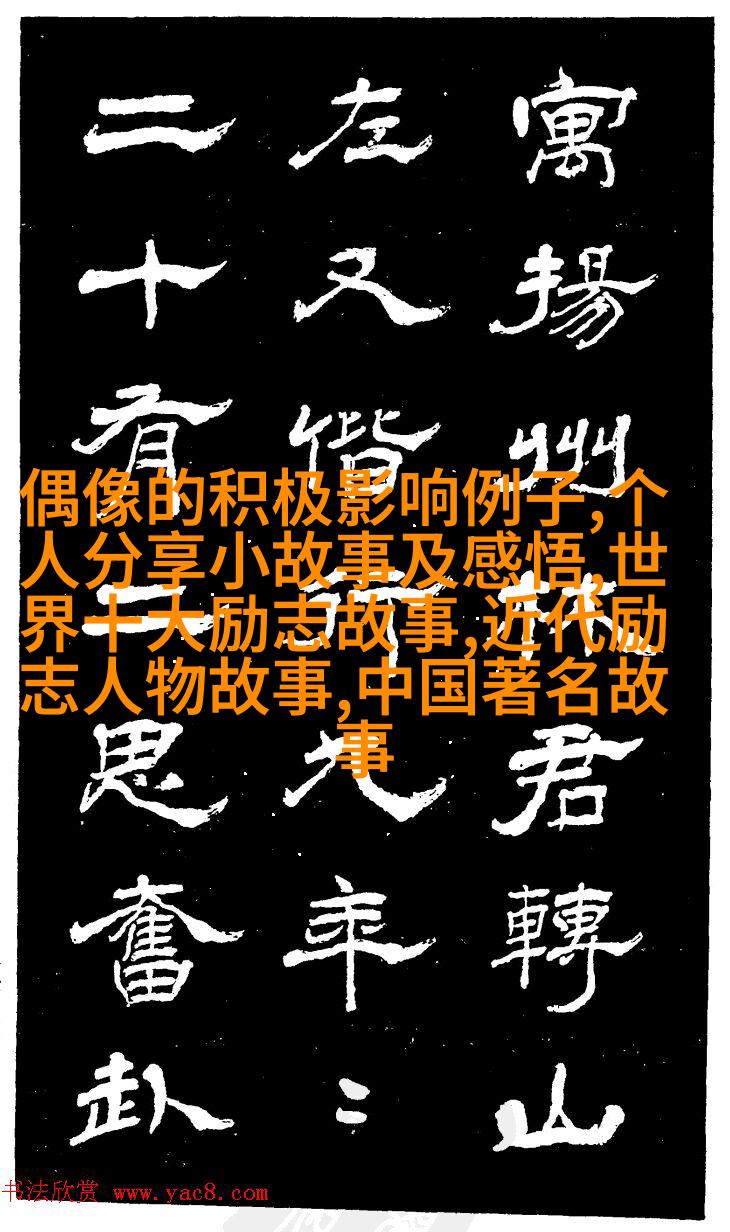 寓揚州林君轉山
左又偕行九年〻
二十有二思奮赴
偶像的积极影响例子,个
人分享小故事及感悟,世
界十大励志故事,近代励
志人物故事,中国著名故
事
书法欣赏 www.yac8.com